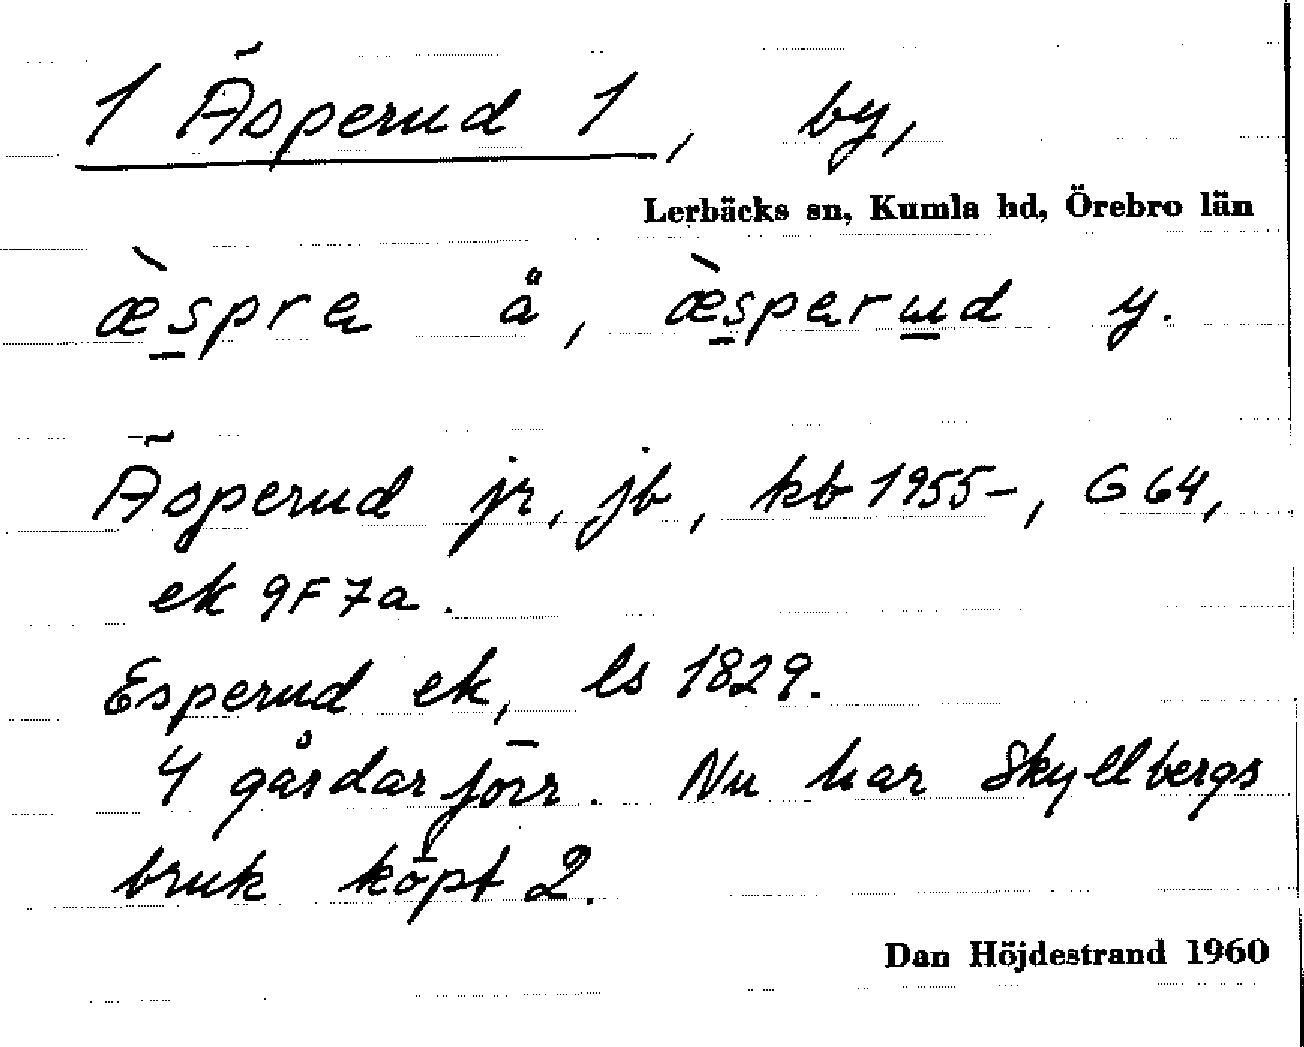 1 Äsperud 1, by,
Lerbäcks sn, Kumla hd, Örebro län
æ̀s̲pra å, æ̀s̲paru̲d y.
Äsperud jr, jb, kb 1955-, G 64,
ek 9F7a.
Esperud ek, ls 1829.
4 gårdar förr. Nu har Skyllbergs
bruk köpt 2.
Dan Höjdestrand 1960